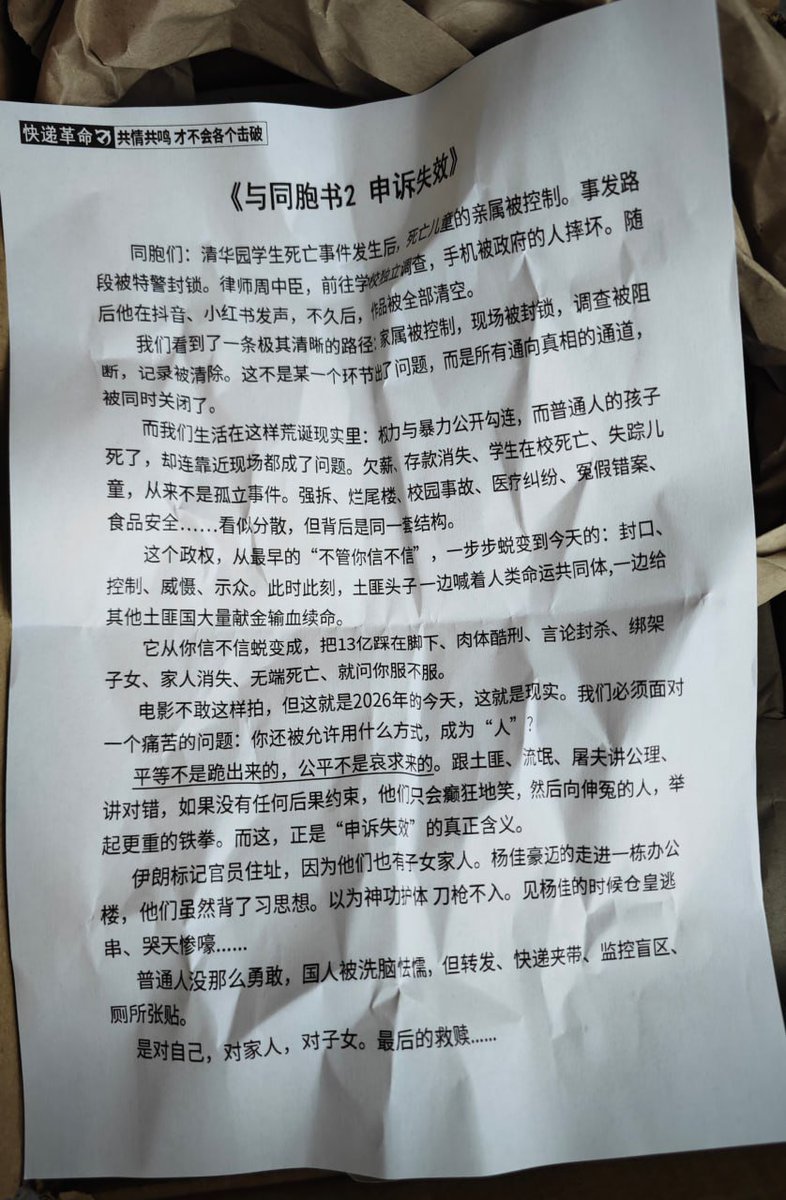 快递革命 共情共鸣 才不会各个击破
《与同胞书2 申诉失效》
同胞们：清华园学生死亡事件发生后，死亡儿童的亲属被控制。事发路
段被特警封锁。律师周中臣，前往学校独立调查，手机被政府的人摔坏。随
后他在抖音、小红书发声，不久后，作品被全部清空。
我们看到了一条极其清晰的路径：家属被控制，现场被封锁，调查被阻
断，记录被清除。这不是某一个环节出了问题，而是所有通向真相的通道，
被同时关闭了。
而我们生活在这样荒诞现实里：权力与暴力公开勾连，而普通人的孩子
死了，却连靠近现场都成了问题。欠薪、存款消失、学生在校死亡、失踪儿
童，从来不是孤立事件。强拆、烂尾楼、校园事故、医疗纠纷、冤假错案、
食品安全……看似分散，但背后是同一套结构。
这个政权，从最早的“不管你信不信”，一步步蜕变到今天的：封口、
控制、威慑、示众。此时此刻，土匪头子一边喊着人类命运共同体,一边给
其他土匪国大量献金输血续命。
它从你信不信蜕变成，把13亿踩在脚下、肉体酷刑、言论封杀、绑架
子女、家人消失、无端死亡、就问你服不服。
电影不敢这样拍，但这就是2026年的今天，这就是现实。我们必须面对
一个痛苦的问题：你还被允许用什么方式，成为“人”？
平等不是跪出来的，公平不是哀求来的。跟土匪、流氓、屠夫讲公理、
讲对错，如果没有任何后果约束，他们只会癫狂地笑，然后向伸冤的人，举
起更重的铁拳。而这，正是“申诉失效”的真正含义。
伊朗标记官员住址，因为他们也有子女家人。杨佳豪迈的走进一栋办公
楼，他们虽然背了习思想。以为神功护体 刀枪不入。见杨佳的时候仓皇逃
串、哭天惨嚎……
普通人没那么勇敢，国人被洗脑怯懦，但转发、快递夹带、监控盲区、
厕所张贴。
是对自己，对家人，对子女。最后的救赎……